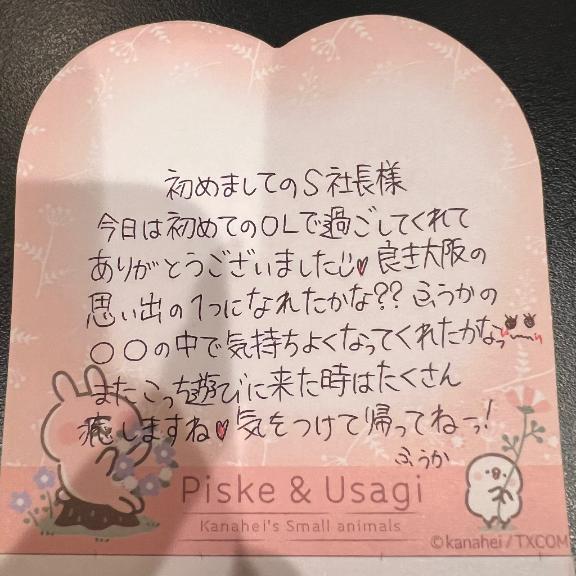 初めましてのS社長様
今日は初めてのOLで過ごしてくれて
ありがとうございました♥良き大阪の
思い出の1つになれたかな??ふうかの
〇〇の中で気持ちよくなってくれたかなっ
またこっち遊びに来た時はたくさん
癒しますね♥気をつけて帰ってねーっ!
ふうか
Piske & Usagi
Kanahei's Small animals
©kanahei/TXCOM